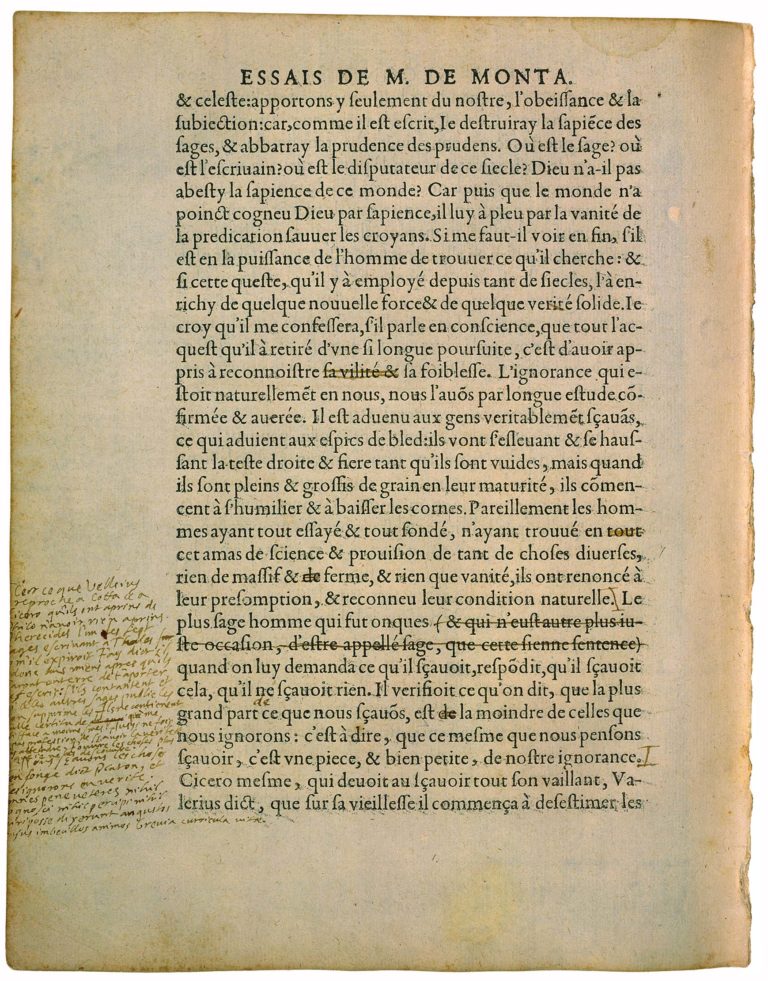 ESSAIS DE M. DE MONTA.
& celeste: apportons y ſeulement du noſtre, l'obeiſſance & la
ſubiection: car, comme il eſt eſcrit, Ie deſtruiray la ſapiẽce des
ſages, & abbatray la prudence des prudens. Où eſt le ſage? où
eſt l'eſcriuain? où eſt le diſputateur de ce ſiecle? Dieu n'a-il pas
abeſty la ſapience de ce monde? Car puis que le monde n'a
poinct cogneu Dieu par ſapience, il luy à pleu par la vanité de
la predication ſauuer les croyans. Si me faut-il voir en fin, ſ'il
eſt en la puiſſance de l'homme de trouuer ce qu'il cherche: &
ſi cette queſte, qu'il y à employé depuis tant de ſiecles, l'à en-
richy de quelque nouuelle force & de quelque verité ſolide. Ie
croy qu'il me confeſſera, ſ'il parle en conſcience, que tout l'ac-
queſt qu'il à retiré d'vne ſi longue pourſuite, c'eſt d'auoir ap-
pris à reconnoiſtre ſa vilité & ſa foibleſſe. L'ignorance qui e-
ſtoit naturellemẽt en nous, nous l'auõs par longue eſtude cõ-
firmée & auerée. Il eſt aduenu aux gens veritablemẽt ſçauãs,
ce qui aduient aux eſpics de bled: ils vont ſ'eſleuant & ſe hauſ-
ſant la teſte droite & fiere tant qu'ils ſont vuides, mais quand
ils ſont pleins & groſſis de grain en leur maturité, ils cõmen-
cent à ſ'humilier & à baiſſer les cornes. Pareillement les hom-
mes ayant tout eſſayé & tout ſondé, n'ayant trouué en tout
cet amas de ſcience & prouiſion de tant de choſes diuerſes,
rien de maſſif & de ferme, & rien que vanité, ils ont renoncé à
leur preſomption, & reconneu leur condition naturelle. Le
plus ſage homme qui fut onques (& qui n'euſt autre plus iu-
ſte occaſion, d'eſtre appellé ſage, que cette ſienne ſentence)
quand on luy demanda ce qu'il ſçauoit, reſpõdit, qu'il ſçauoit
cela, qu'il ne ſçauoit rien. Il verifioit ce qu'on dit, que la plus
grand part de ce que nous ſçauõs, eſt de la moindre de celles que
nous ignorons: c'eſt à dire, que ce meſme que nous penſons
ſçauoir, c'eſt vne piece, & bien petite, de noſtre ignorance.
Cicero meſme, qui deuoit au ſçauoir tout ſon vaillant, Va-
lerius dict, que ſur ſa vieilleſſe il commença à deſeſtimer les
C'est ce que Velleius
reproche a Cotta & a
Cicero qu'ils ont aprins de
Philo n'avoir rien aprins
Pherecides l'un des sept
sages escrivant a Thales